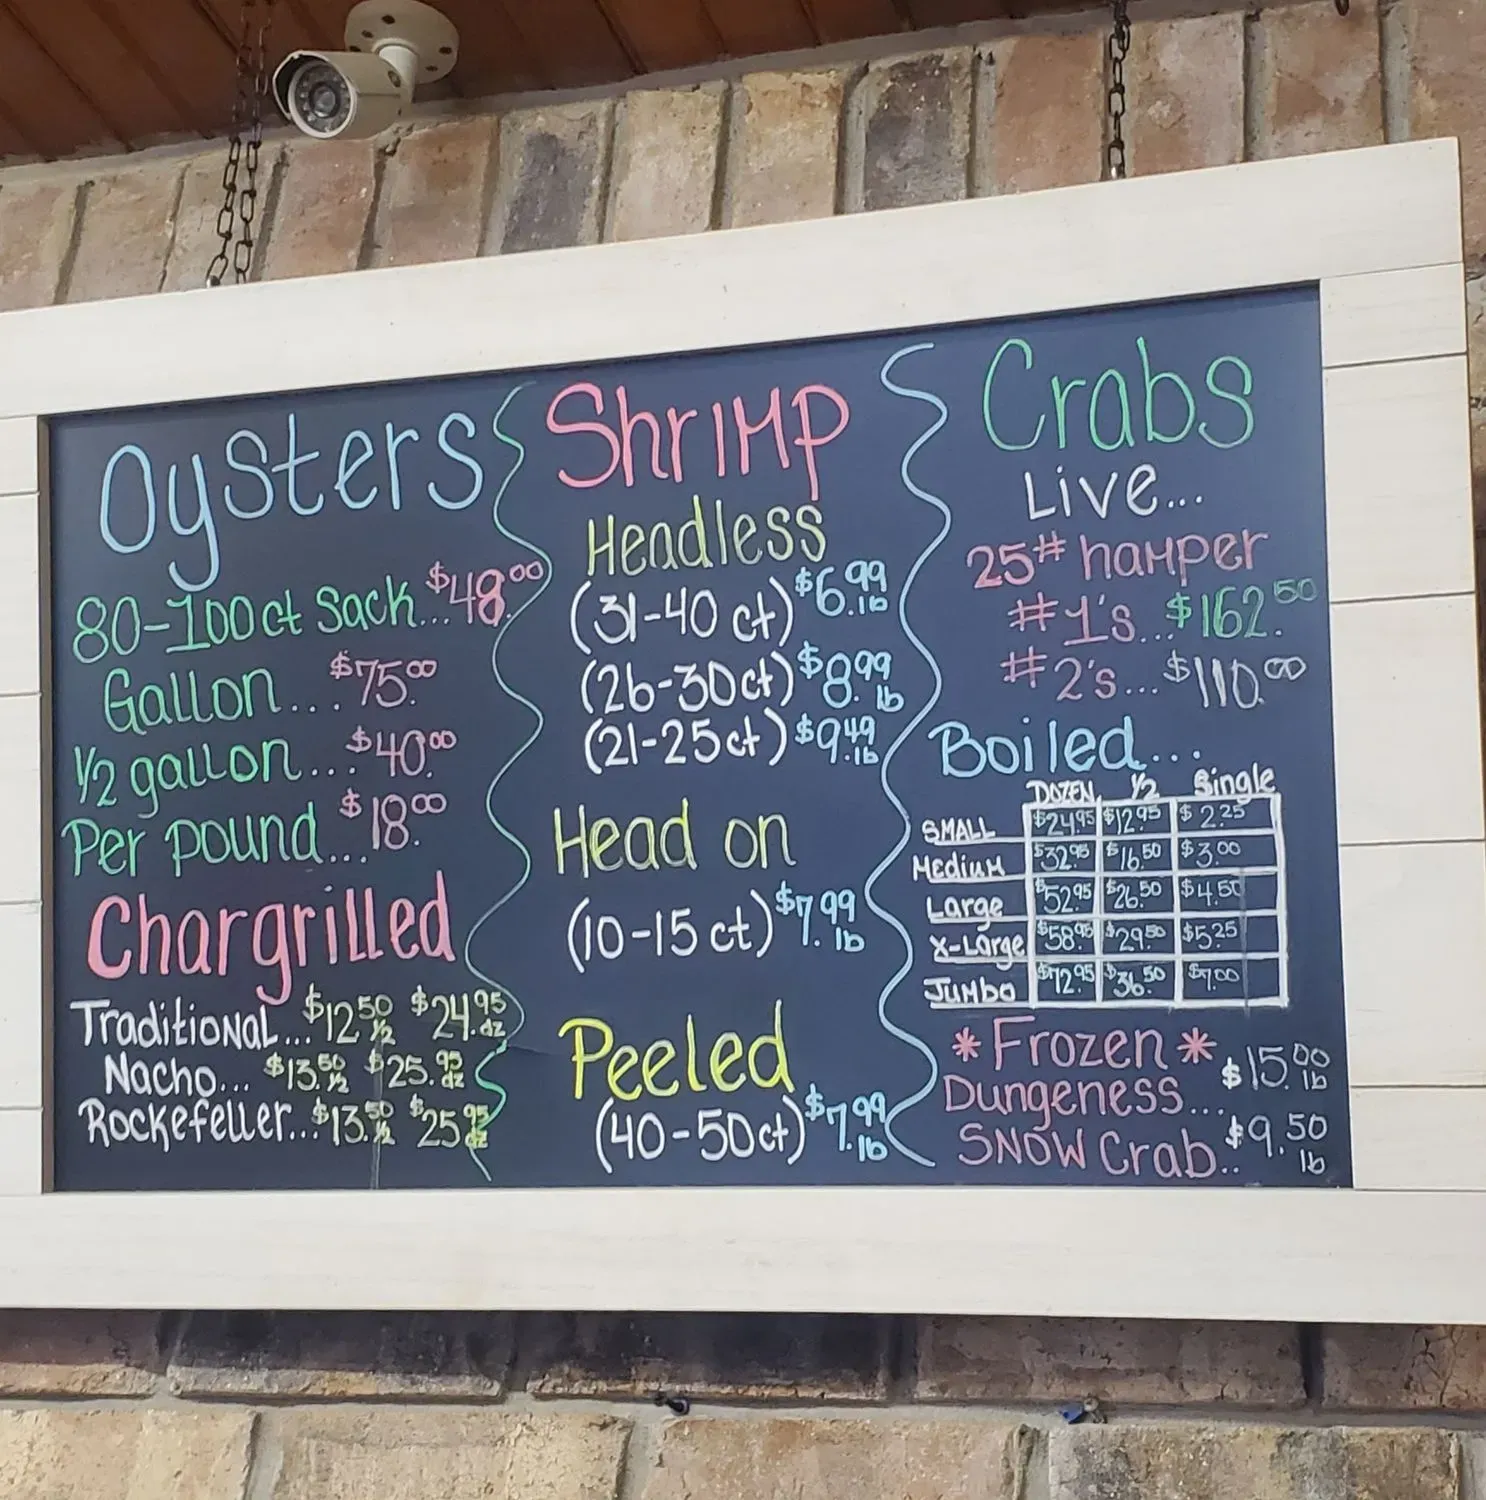 Oysters
80-100ct Sack...$48.00
Gallon...$75.00
1/2 gallon...$40.00
Per pound...$18.00
Chargrilled
Traditional...$12.50 1/2 $24.95 dz
Nacho... $13.50 1/2 $25.95 dz
Rockefeller...$13.50 1/2 $25.95 dz
Shrimp
Headless
(31-40 ct) $6.99 lb
(26-30ct) $8.99 lb
(21-25ct) $9.49 lb
Head on
(10-15 ct) $7.99 lb
Peeled
(40-50ct) $7.99 lb
Crabs
Live...
25# hamper
#1's...$162.50
#2's...$110.00
Boiled...
DOZEN 1/2 Single
SMALL $24.95 $12.95 $2.25
Medium $32.95 $16.50 $3.00
Large $52.95 $26.50 $4.50
X-Large $58.95 $29.50 $5.25
Jumbo $72.95 $36.50 $7.00
*Frozen*
Dungeness... $15.00 lb
SNOW Crab.. $9.50 lb